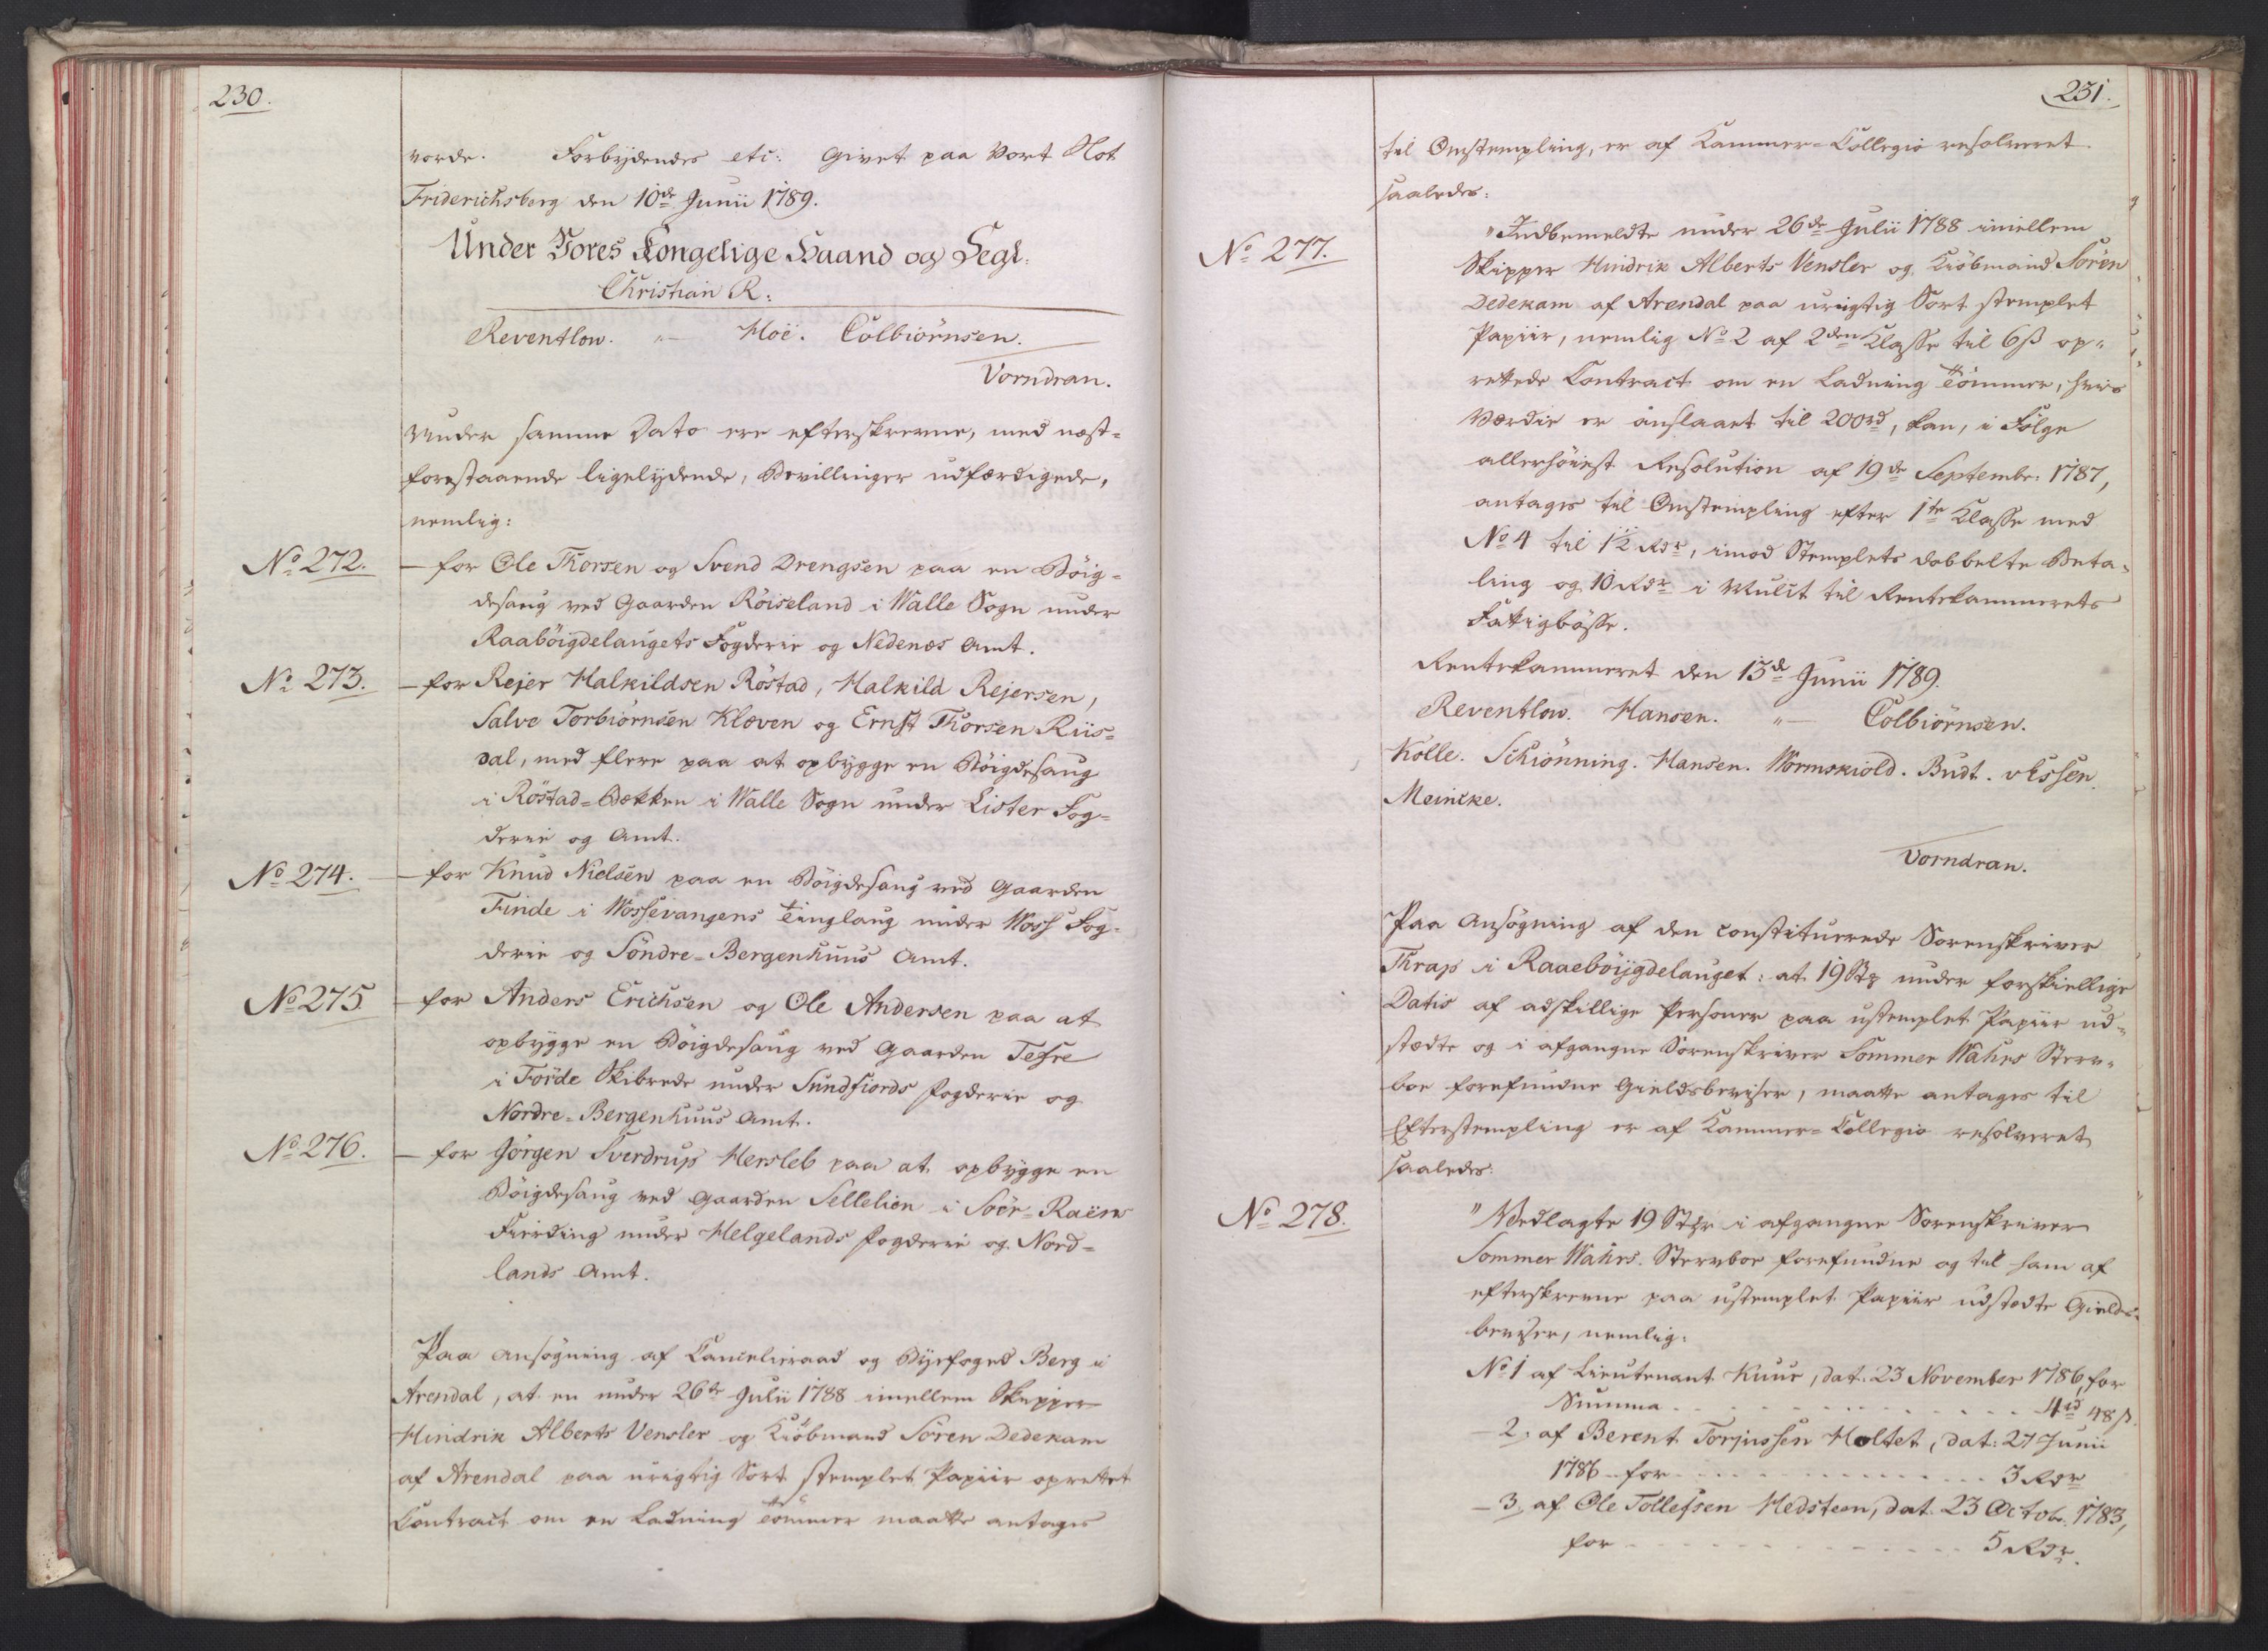 230.
vorde. Forbydendes etc: Givet paa Vort Slot
Friderichsberg den 10de Junii 1789.
Under Vores Kongelige Haand og Segl.
Christian R:
Reventlow. "— Moë. Colbiörnsen.
Vorndran.
Under samme Dato ere efterskrevne, med næst-
forestaaende ligelydende, Bevillinger udfærdigede,
nemlig:
No 272. — for Ole Thorsen og Svend Drengsen paa en Böig-
desaug ved Gaarden Röiseland i Walle Sogn under
Raaböigdelaugets Fogderie og Nedenæs Amt.
No 273. — for Rejer Halkildsen Röstad, Halkild Rejersen,
Salve Torbiörnsen Kleven og Ernst Thorsen Riis-
dal, med flere paa at opbygge en Böigdesaug
i Röstad-Bækken i Walle Sogn under Lister Fog-
derie og Amt.
No 274. — for Knud Nielsen paa en Böigdesaug ved Gaarden
Finde i Wossevangens Tinglaug under Woss Fog-
derie og Söndre-Bergenhuus Amt.
No 275. — for Anders Erichsen og Ole Andersen paa at
opbygge en Böigdesaug ved Gaarden Tefre
i Förde Skibrede under Sundfiords Fogderie og
Nordre-Bergenhuus Amt.
No 276. — for Jörgen Sverdrup Hersleb paa at opbygge en
Böigdesaug ved Gaarden Sellelien i Soër-Raëns
Fierding under Helgelands Fogderie og Nord-
lands Amt.
Paa Ansögning af Cancelieraad og Byefoged Berg i
Arendal, at en under 26de Julii 1788 imellem Skipper
Hindrik Alberts Vensler og Kiöbmand Sören Dedekam
af Arendal paa urigtig Sort stemplet Papiir oprettet
Contract om en Ladning Tömmer maatte antages
231.
til Omstempling, er af Kammer-Collegio resolveret
saaledes:
No 277. "Indbemeldte under 26de Julii 1788 imellem
Skipper Hindrik Alberts Vensler og Kiöbmand Sören
Dedekam af Arendal paa urigtig Sort stemplet
Papiir, nemlig No 2 af 2den Classe til 6 ß op-
rettede Contract om en Ladning Tömmer, hvis
Værdie er anslaaet til 200rd, kan, i Fölge
allerhöiest Resolution af 19de Septembr: 1787,
antages til Omstempling efter 1te Classe med
No 4 til 1½ Rdr, imod Stemplets dobbelte Beta-
ling og 10 Rdr i Mulct til Rentekammerets
Fattigbösse.
Rentekammeret den 13de Junii 1789.
Reventlow. Hansen. "— Colbiörnsen.
Kölle. Schiönning. Hansen. Wormskiold. Budt. v Essen.
Meincke.
Vorndran.
Paa Ansögning af den constituerede Sorenskriver
Thrap i Raaeböygdelauget: at 19 Stk under forskiellige
Datis af adskillige Personer paa ustemplet Papiir ud-
stædte og i afgangne Sorenskriver Sommer Wahrs Sterv-
boe forefundne Gieldsbeviser, maatte antages til
Efterstempling er af Kammer-Collegio resolveret
saaledes:
No 278. "Vedlagte 19 Stkr i afgangne Sorenskriver
Sommer Wahrs Stervboe forefundne og til ham af
efterskrevne paa ustemplet Papiir udstædte Gields-
beviser, nemlig:
No 1 af Lieutenant Kuur, dat: 23 November 1786, for
Summa - - - 4rd 48 ß.
— 2, af Berent Torjussen Holtet, dat: 27 Junii
1786 for - - - 3 Rdr
— 3, af Ole Tollefsen Hedsteen, dat. 23 Octobr. 1783,
for - - - 5 Rdr.